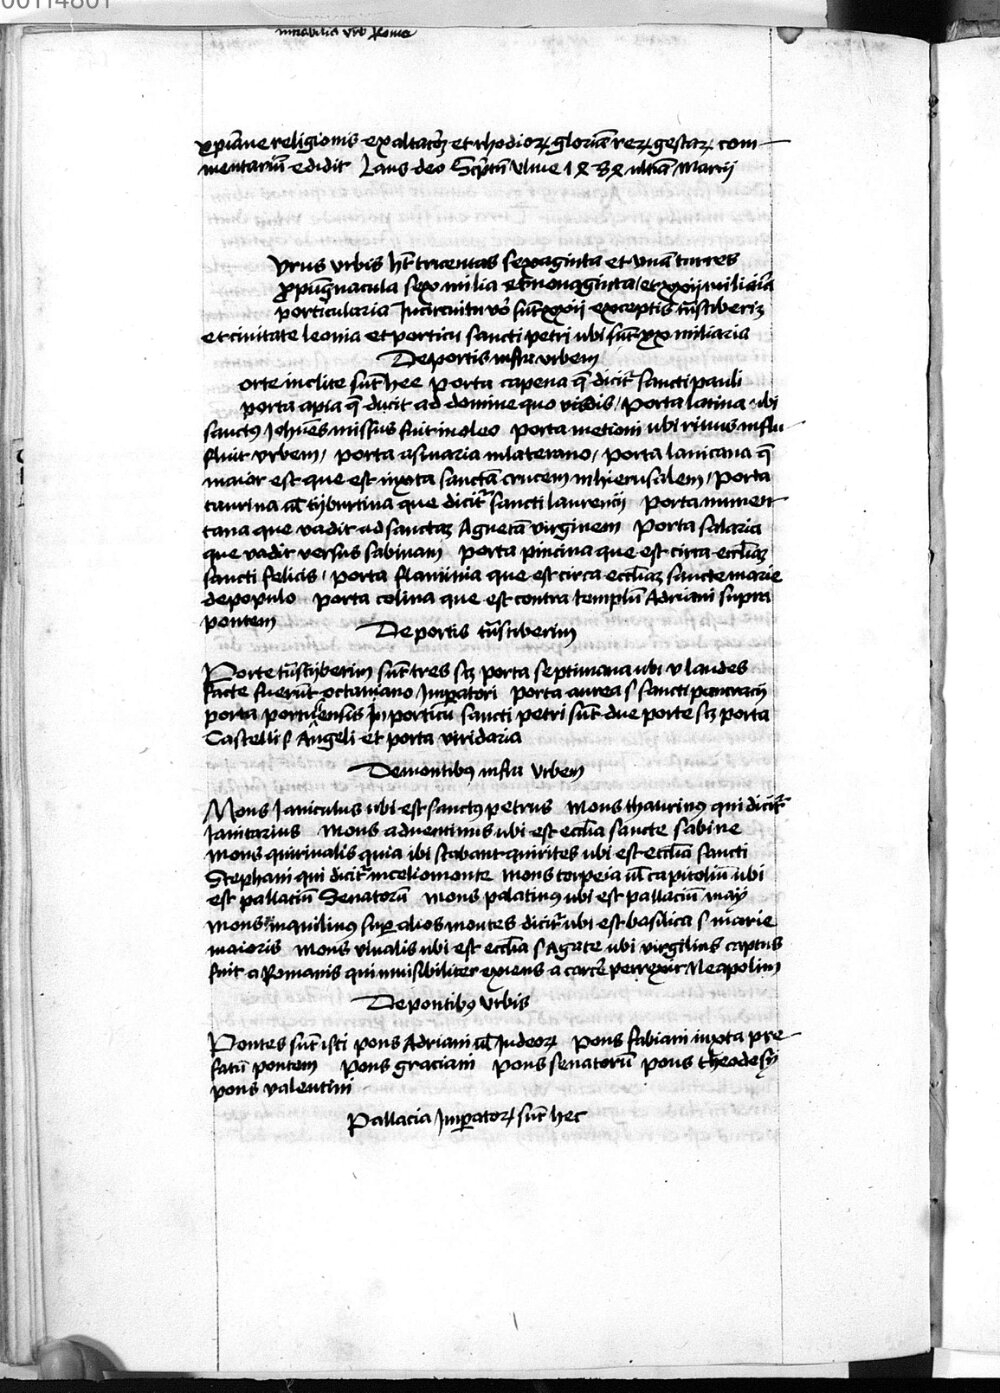 00114801
mirabilia urb Rome
xpiane religionis exaltatoẽ et rhodioꝝ gloriã reꝝ gestaꝝ com-
mentariũ edidit Laus deo Scptũ Ulme 1482 ultĩa Marcij
Urus urbis ht tricentas sexaginta et una turres
ꝓpugnacula sex milia et nonaginta / et xxij miliaria
porticularia In circuitu vo sũt xxij exceptis tũstiberiz
et civitate leonia et porticu sancti petri ubi sũt xx miliaria
De portis infra urbem
orte inclite sũt hee porta capena q̃ dicit sancti pauli
porta apia q̃ ducit ad domine quo vadis / Porta latina ubi
sanctus Johnes missus fuit in oleo porta metioni ubi rivus influ-
fluit urbem / porta asinaria in laterano / porta lavicana q̃
maior est que est iuxta sanctã crucem in hierusalem / porta
taurina ul tyburtina que dicit sancti laurencij porta numen-
tana que vadit ad sanctaz Agnetã virginem porta salaria
que vadit versus sabinam porta pinciana que est circa eccliaz
sancti felicis / porta flaminia que est circa eccliaz sancte marie
de populo porta colina que est contra templũ Adriani supra
pontem
De portis tũstiberim
Porte tũstyberim sũt tres sz porta septimiana ubi v laudes
facte fuerũt octaviano Impatori porta aurea s sancti pancracij
porta portuensis In porticu sancti petri sũt due porte sz porta
Castelli s Angeli et porta viridaria
De montibus infra Urbem
Mons Janiculus ubi est sanctus petrus Mons thaurinus qui dicit
Janitarius Mons adventinus ubi est ecclia sancte sabine
Mons quirinalis quia ibi stabant quirites ubi est ecclia sancti
Stephani qui dicit in celio monte Mons torpeia ul capitoliũ ubi
est pallaciũ Senatorũ Mons palatinus ubi est pallaciũ may
Mons inquilinus sup alios montes dicit ubi est basilica s marie
maioris Mons vivalis ubi est ecclia s Agate ubi virgilius captus
fuit a Romanis qui invisibiliter exiens a carcẽ perrexit Neapolim
De pontibus Urbis
Pontes sũt isti pons Adriani ul Judeoꝝ Pons fabiani iuxta pre-
fatũ pontem Pons graciani Pons senatorũ pons theodesij
pons valentini
Pallacia Impatoꝝ sũt hec